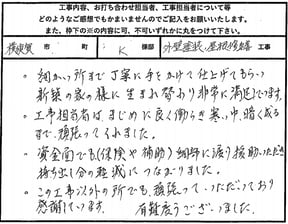 工事内容、お打ち合わせ担当者、工事担当者について等
どのようなご感想でもかまいませんのでご記入をお願いいたします。
また、枠下の※の内容に可、不可いずれかに丸をつけて下さい。
横須賀 市 町 K 様邸 外壁塗装、屋根修繕 工事
・細かい所まで丁寧に手をかけて仕上げてもらい
新築の家の様に生まれ替わり非常に満足です。
・工事担当者は、まじめに良く働らき寒い中、暗く成る
まで頑張ってくれました。
・資金面でも(保険や補助)細部に渡り援助いただき
持ち出し分の軽減につながりました。
・この工事以外の所でも頑張っていただいており
感謝しています。 有難度うございました。